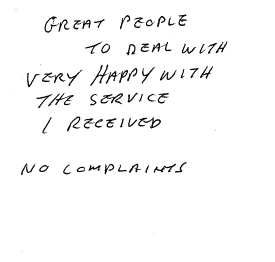 GREAT PEOPLE
TO DEAL WITH
VERY HAPPY WITH
THE SERVICE
I RECEIVED
NO COMPLAINTS